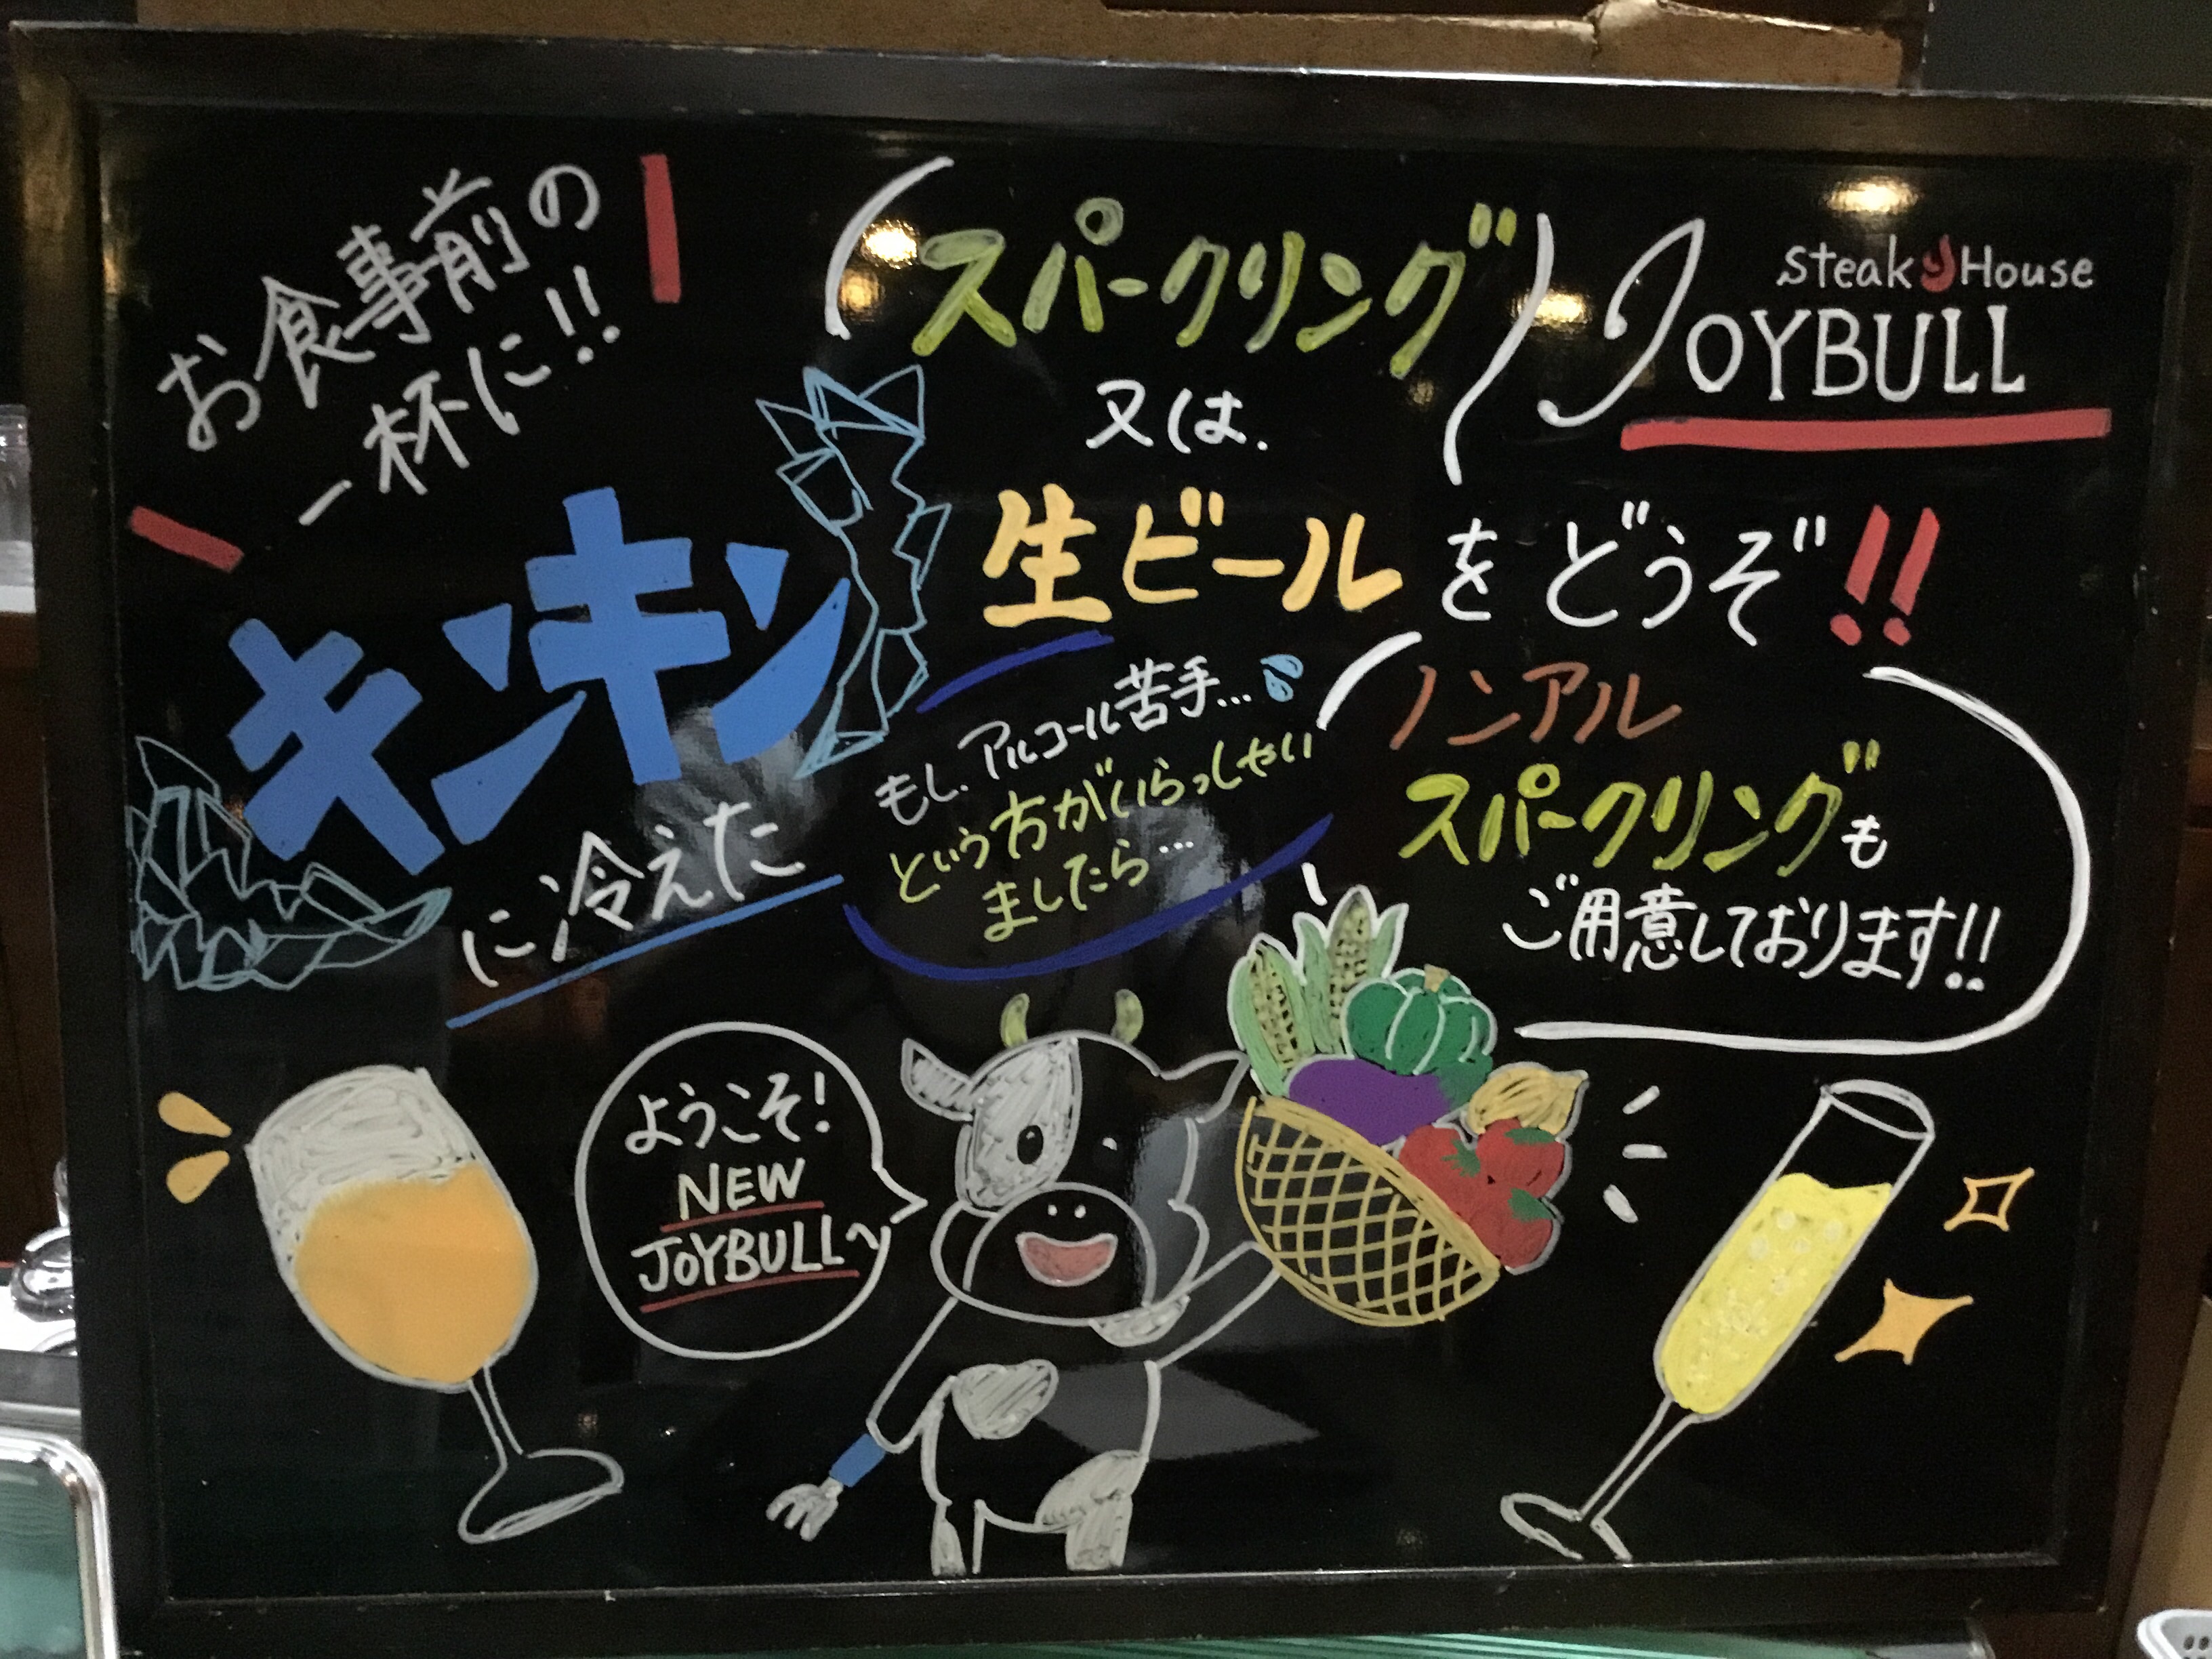 お食事前の
一杯に!!
キンキン
に冷えた
スパークリング
又は.
生ビールをどうぞ!!
Steak House
JOYBULL
もし.アルコール苦手...
という方がいらっしゃい
ましたら...
ノンアル
スパークリングも
ご用意しております!!
ようこそ!
NEW
JOYBULL~